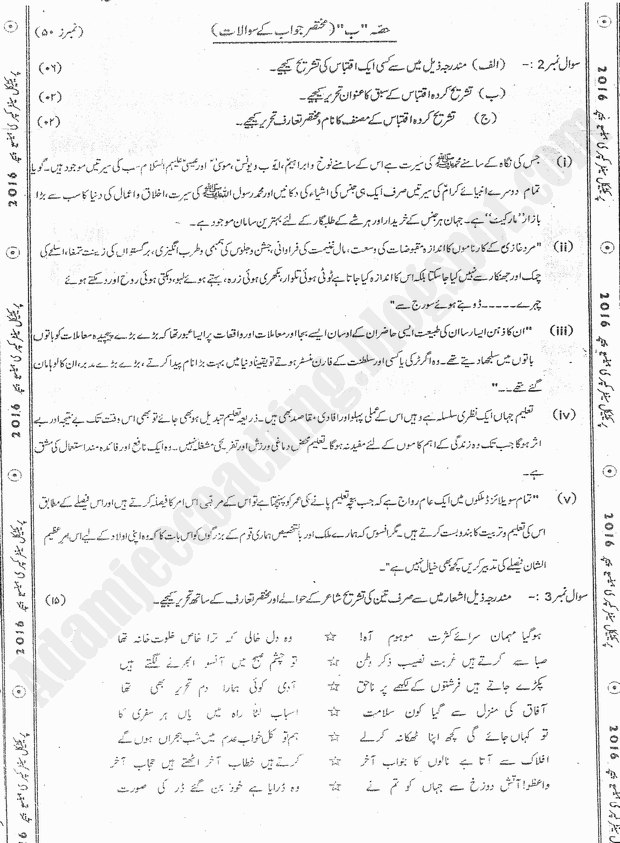 حصہ "ب" (مختصر جواب کے سوالات) (نمبرز ۵۰)
سوال نمبر 2 :- (الف) مندرجہ ذیل میں سے کسی ایک اقتباس کی تشریح کیجیے۔ (۰۶)
(ب) تشریح کردہ اقتباس کے سبق کا عنوان تحریر کیجیے۔ (۰۲)
(ج) تشریح کردہ اقتباس کے مصنف کا نام و مختصر تعارف تحریر کیجیے۔ (۰۲)
(i) جس کی نگاہ کے سامنے محمدﷺ کی سیرت ہے اس کے سامنے نوحؑ و ابراہیمؑ، ایوبؑ و یونسؑ، موسیٰؑ اور عیسیٰ علیہم السلام سب کی سیرتیں موجود ہیں۔ گویا
تمام دوسرے انبیائے کرامؑ کی سیرتیں صرف ایک ہی جنس کی اشیاء کی دکانیں اور محمد رسول اللہﷺ کی سیرت، اخلاق و اعمال کی دنیا کا سب سے بڑا
بازار "مارکیٹ" ہے۔ جہاں ہر جنس کے خریدار اور ہر شے کے طلبگار کے لئے بہترین سامان موجود ہے۔
(ii) "مرد غازی کے کارناموں کا اندازہ مقبوضات کی وسعت، مال غنیمت کی فراوانی، جشن و جلوس کی ہمہمی و طرب انگیزی، برگستواں کی زینت، تمغا، اسلے کی
چمک اور جھنکار سے نہیں کیا جاسکتا بلکہ اس کا اندازہ کیا جاتا ہے ٹوٹی ہوئی تلوار، بکھری ہوئی زرہ، بہتے ہوئے لہو، دہکتی ہوئی روح اور دمکتے ہوئے
چہرے ۔۔۔۔۔ ڈوبتے ہوئے سورج سے"
(iii) "ان کا ذہن ایسا رسا ان کی طبیعت ایسی حاضر ان کے اوسان ایسے بجا اور معاملات اور واقعات پر ایسا عبور تھا کہ بڑے بڑے پیچیدہ معاملات کو باتوں
باتوں میں سلجھا دیتے تھے۔ وہ اگر ٹرکی یا کسی اور سلطنت کے فارن منسٹر ہوتے تو یقیناً دنیا میں بہت بڑا نام پیدا کرتے، بڑے بڑے مدبر، ان کا لوہا مان
گئے تھے۔۔۔"
(iv) تعلیم جہاں ایک نظری سلسلہ ہے وہیں اس کے عملی پہلو اور افادی مقاصد بھی ہیں۔ ذریعہ تعلیم تبدیل ہو بھی جائے تو بھی اس وقت تک بے نتیجہ اور بے
اثر ہوگا جب تک وہ زندگی کے اہم کاموں کے لئے مفید نہ ہوگا۔ تعلیم محض دماغی ورزش اور تفریحی مشغلہ نہیں۔ وہ ایک نافع اور فائدہ مند استعمال کی مشق
ہے۔
(v) "تمام سویلائزڈ ملکوں میں ایک عام رواج ہے کہ جب بچہ تعلیم پانے کی عمر کو پہنچتا ہے تو اس کے مربی اس امر کا فیصلہ کرتے ہیں اور اس فیصلے کے مطابق
اس کی تعلیم و تربیت کا بندوبست کرتے ہیں۔ مگر افسوس کہ ہمارے ملک اور بالتخصیص ہماری قوم کے بزرگوں کو اس بات کا کہ وہ اپنی اولاد کے لیے اس امر عظیم
الشان فیصلے کی تدبیر کریں کچھ بھی خیال نہیں ہے"۔
سوال نمبر 3 :- مندرجہ ذیل اشعار میں سے صرف تین کی تشریح شاعر کے حوالے اور مختصر تعارف کے ساتھ تحریر کیجیے۔ (۱۵)
ہوگیا مہمان سرائے کثرت موہوم آہ! ☆ وہ دل خالی کہ ترا خاص خلوت خانہ تھا
صبا سے کرتے ہیں غربت نصیب ذکر وطن ☆ تو چشم صبح میں آنسو ابھرنے لگتے ہیں
پکڑے جاتے ہیں فرشتوں کے لکھے پر ناحق ☆ آدمی کوئی ہمارا دم تحریر بھی تھا
آفاق کی منزل سے گیا کون سلامت ☆ اسباب لٹا راہ میں یاں ہر سفری کا
تو کہاں جائے گی کچھ اپنا ٹھکانہ کرلے ☆ ہم تو کل خواب عدم میں شب ہجراں ہوں گے
افلاک سے آتا ہے نالوں کا جواب آخر ☆ کرتے ہیں خطاب آخر اٹھتے ہیں حجاب آخر
واعظو! آتش دوزخ سے جہاں کو تم نے ☆ وہ ڈرایا ہے خود بن گئے ڈر کی صورت
2016
Adamjeecoaching.blogspot.com